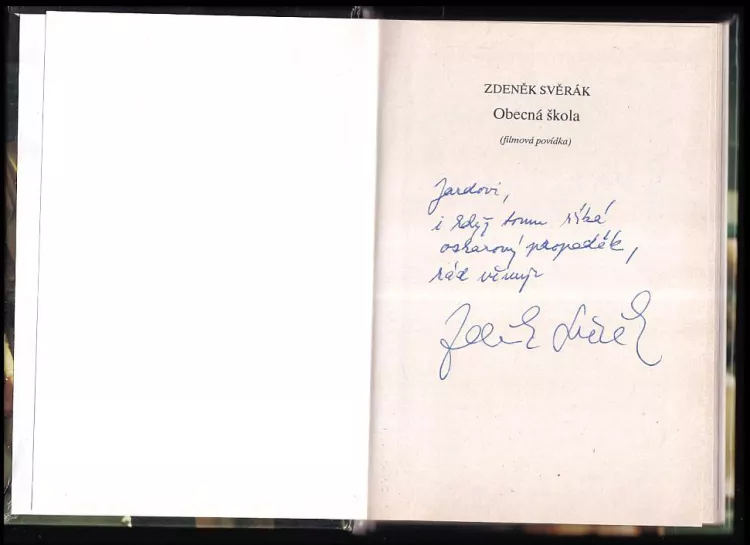 ZDENĚK SVĚRÁK
Obecná škola
(filmová povídka)
Jardovi,
i když tomu říká
oskarový propadák,
rád věnuje
Zdeněk Svěrák